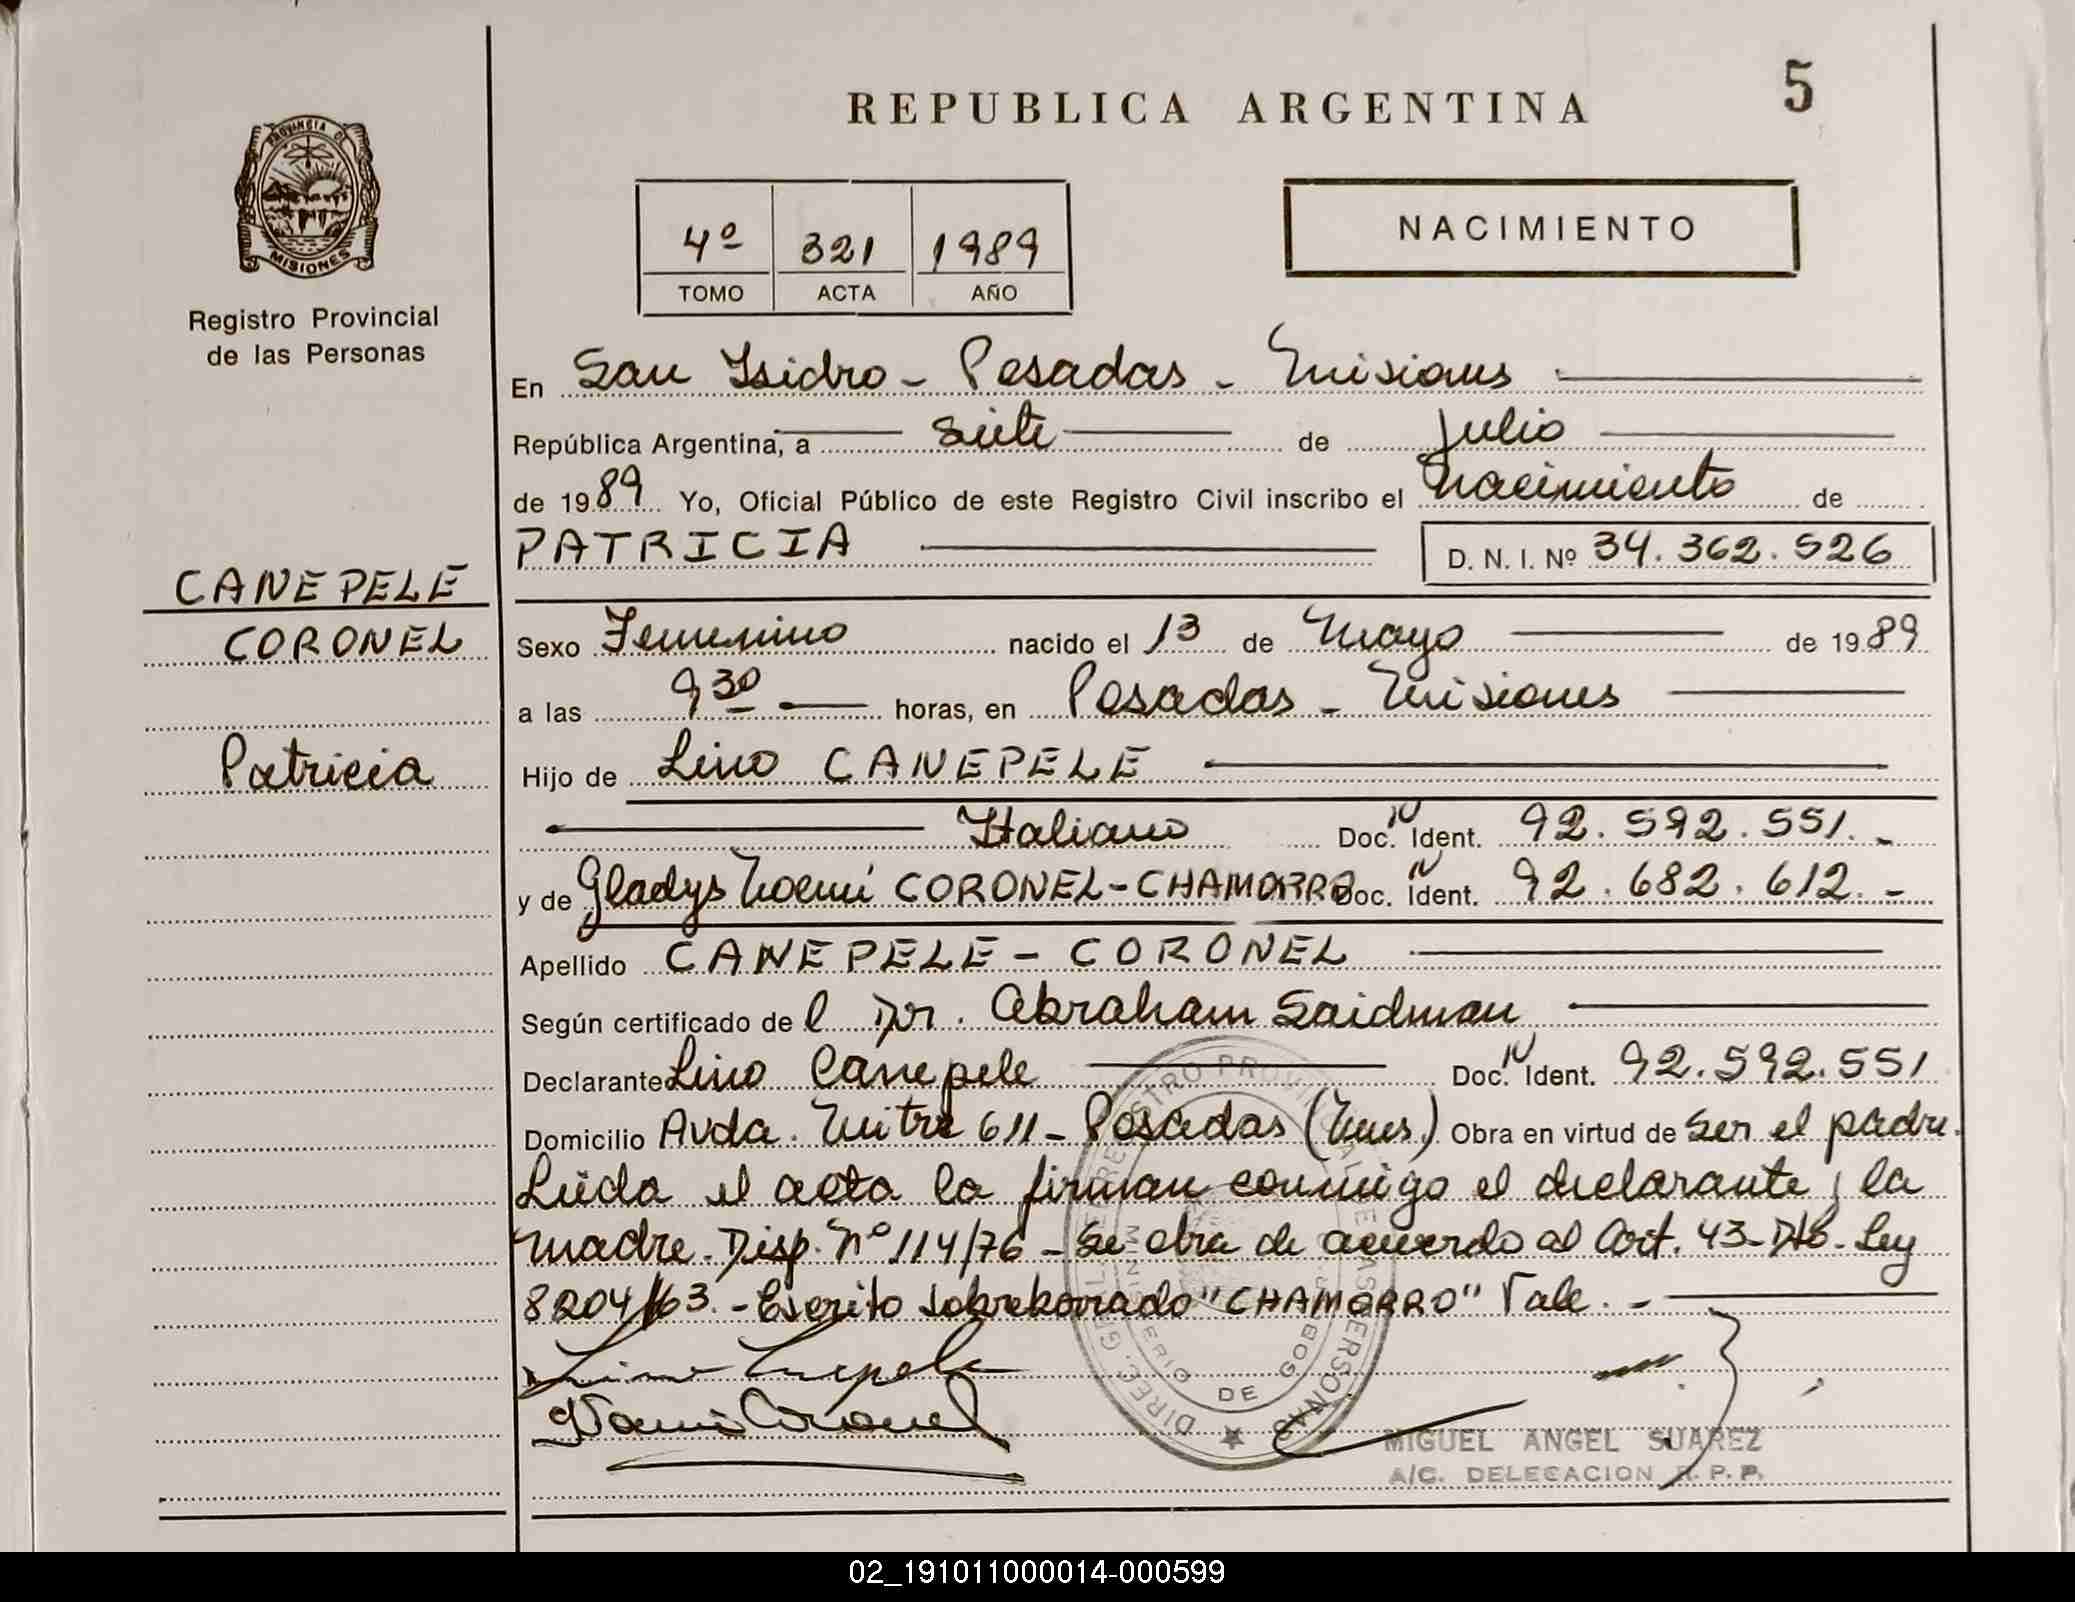 REPUBLICA ARGENTINA
5
PROVINCIA DE
MISIONES
Registro Provincial
de las Personas
4º 321 1989
TOMO ACTA AÑO
NACIMIENTO
En San Isidro - Posadas - Misiones
República Argentina, a siete de Julio
de 1989 Yo, Oficial Público de este Registro Civil inscribo el nacimiento de
PATRICIA D. N. I. Nº 34.362.526
CANEPELE
CORONEL
Patricia
Sexo Femenino nacido el 13 de Mayo de 1989
a las 9 30 horas, en Posadas - Misiones
Hijo de Lino CANEPELE
Italiano Doc. N Ident. 92.592.551.-
y de Gladys Noemí CORONEL-CHAMORRO Doc. N Ident. 92.682.612.-
Apellido CANEPELE - CORONEL
Según certificado de l Dr. Abraham Saidman
Declarante Lino Canepele Doc. N Ident. 92.592.551
Domicilio Avda. Mitre 611 - Posadas (Mnes.) Obra en virtud de ser el padre.
Leída el acta la firman conmigo el declarante y la
madre. Disp. Nº 114/76 - Se obra de acuerdo al Art. 43- Dto- Ley
8204/63.- Escrito sobreborrado "CHAMORRO" Vale. -
Noemi Coronel
DIREC. GRAL. DE REGISTRO PROVINCIAL DE LAS PERSONAS
MINISTERIO DE GOB
MIGUEL ANGEL SUAREZ
A/C. DELEGACION R. P. P.
02_191011000014-000599